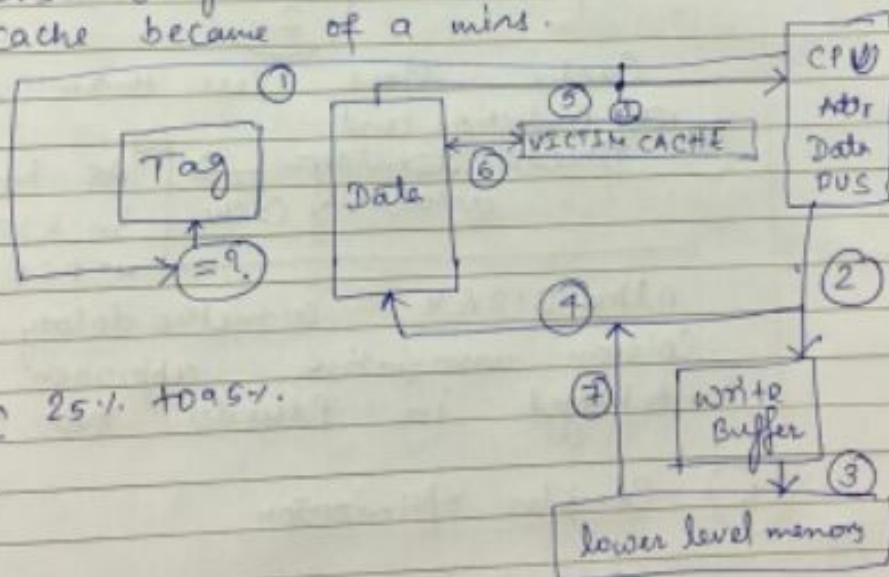 cache became of a miss.
①
CPU
⑤
Addr
VICTIM CACHE
Tag
⑥
Data
Data
BUS
= ?
②
④
25% to 95%.
⑦
Write
Buffer
③
lower level memory